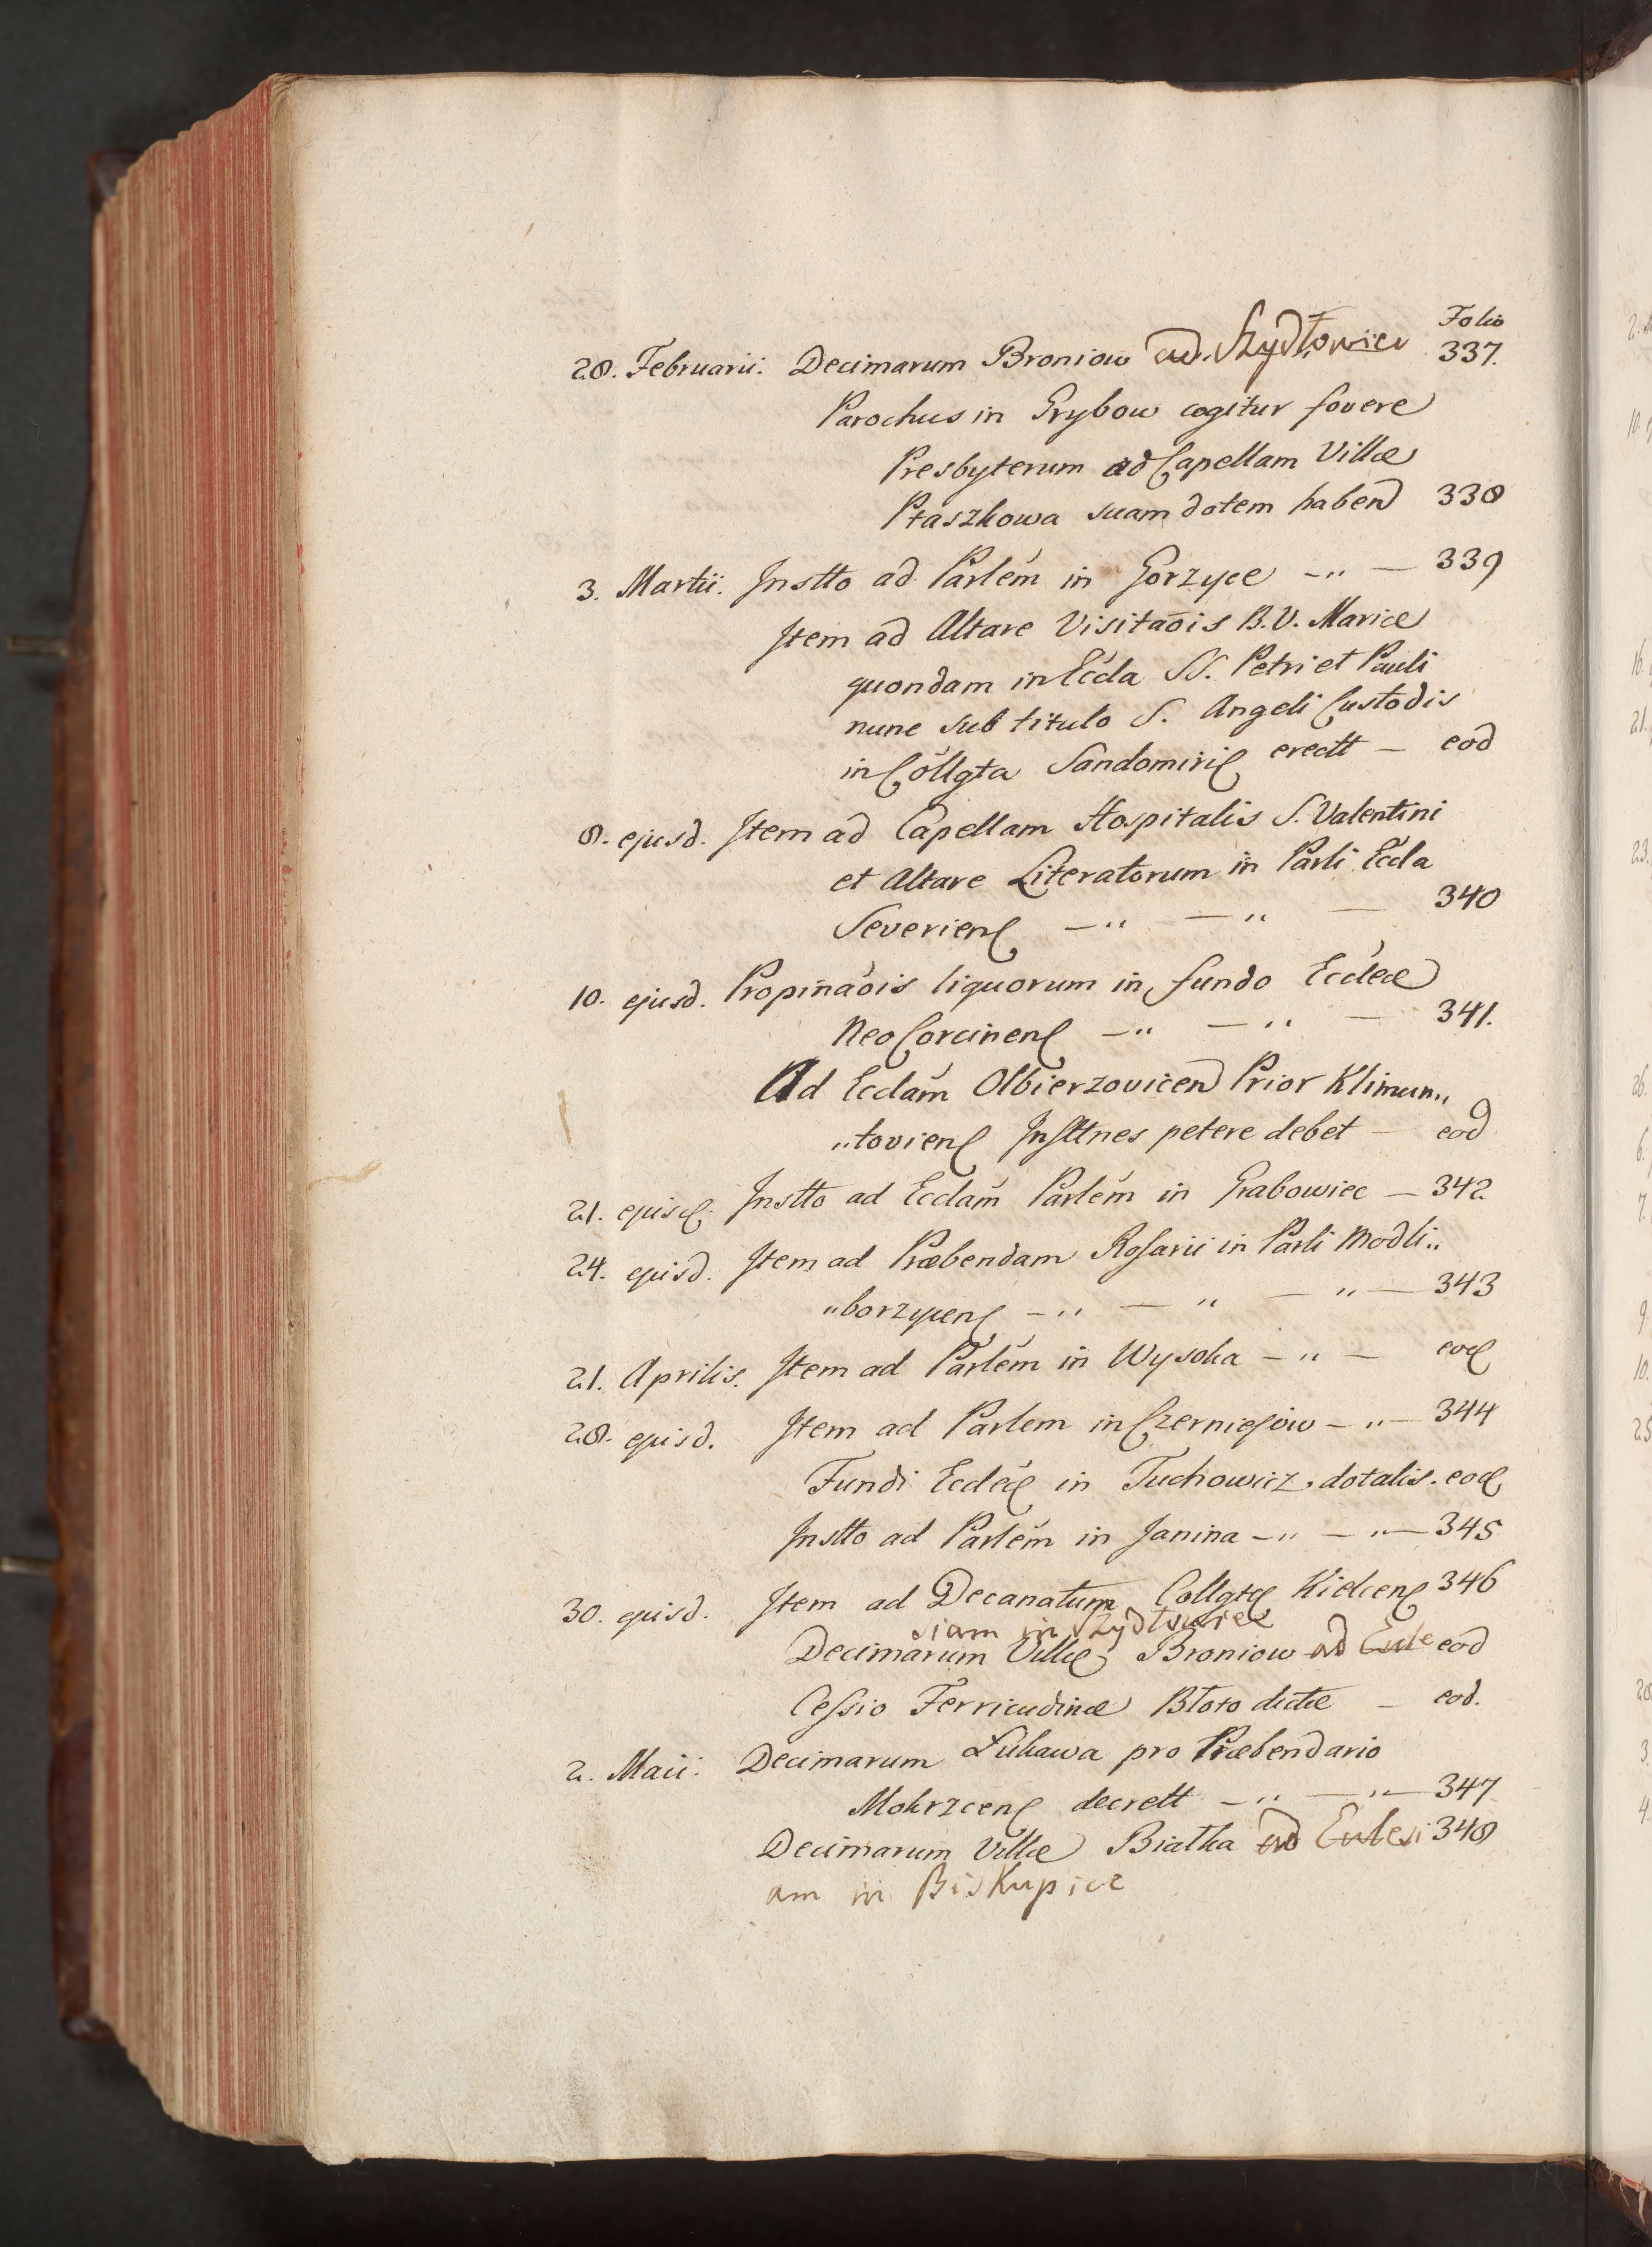 Folio
28. Februarii. Decimarum Broniow ad Szydłowiec 337.
Parochus in Grybow cogitur fovere
Presbyterum ad Capellam Villæ
Ptaszkowa suam dotem habend 338
3. Martii. Instto ad Parlem in Gorzyce -"- 339
Item ad Altare Visitaois B.V. Mariæ
quondam in Eccla SS. Petri et Pauli
nunc sub titulo S. Angeli Custodis
in Collgta Sandomiri erectt - eod
8. ejusd. Item ad Capellam Hospitalis S. Valentini
et Altare Literatorum in Parli Eccla
Severien -" -" - 340
10. ejusd. Propinaois liquorum in fundo Eccleæ
Neo Corcinen -" -" - 341.
Ad Ecclam Olbierzovicen Prior Klimun"
"tovien Insttnes petere debet - eod
21. ejusd. Instto ad Ecclam Parlem in Grabowiec - 342
24. ejusd. Item ad Præbendam Rosarii in Parli Modli"
"borzycen -" -" -"- 343
21. Aprilis. Item ad Parlem in Wysoka -"- eod
28. ejusd. Item ad Parlem in Czerniejów -"- 344
Fundi Eccleæ in Tuchowicz dotalis. eod
Instto ad Parlem in Janina -" -"- 345
30. ejusd. Item ad Decanatum Collgtæ Kielcen 346
siam in Szydłowiec
Decimarum Villæ Broniow ad Eccle eod
Cessio Ferricudinæ Błoto dictæ - eod.
2. Maii. Decimarum Łukawa pro Præbendario
Mokrzcen decrett -" -"- 347
Decimarum Villæ Białka ad Ecclesi 348
am in Biskupice